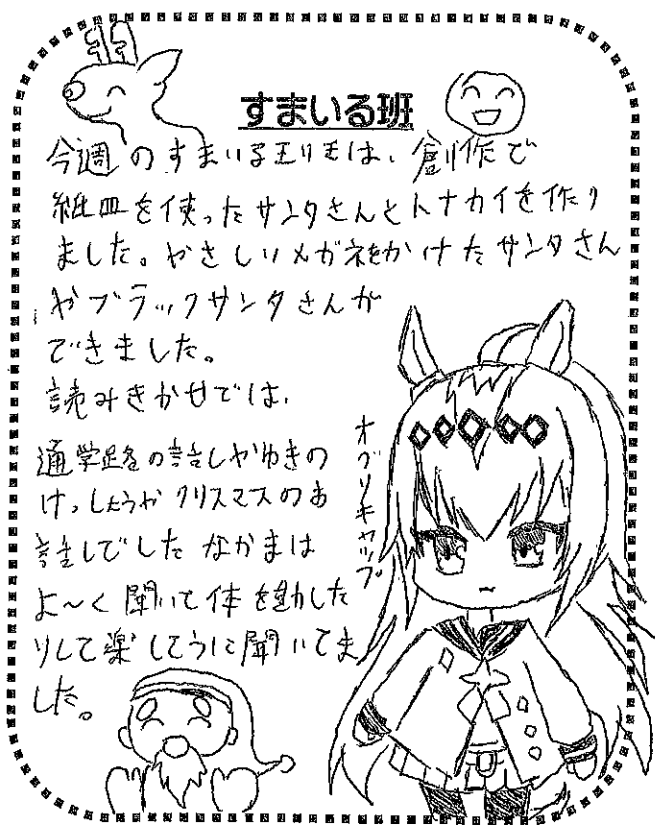 すまいる班
今週のすまいる王リモは、創作で
紙皿を使ったサンタさんとトナカイを作り
ました。やさしいメガネをかけたサンタさん
やブラックサンタさんが
できました。
読みきかせでは、
通学路の話しやゆきの
けっしょうやクリスマスのお
話しでした なかまは
よ〜く聞いて体を動かした
りして楽しそうに聞いてま
した。
オグリキャップ